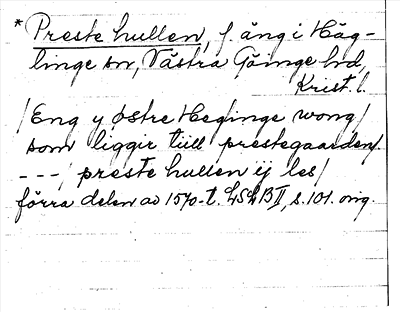 * Preste hullen, f. äng i Häg-
linge sn, Västra Göinge hd,
Krist. l.
/Eng y østre Heginge wong/
som liggir tiill prestegaarden/.
---/ preste hullen ij les/
förra delen av 1570-t. LSLB II, s. 101. orig.